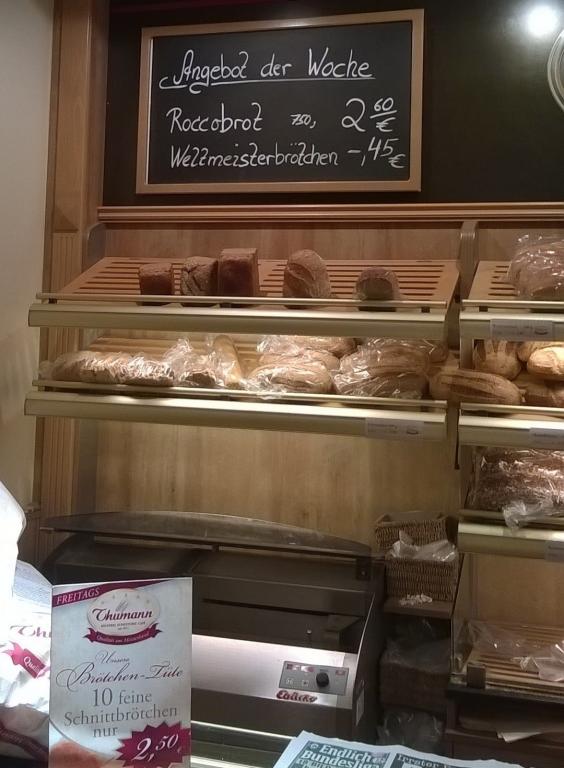 Angebot der Woche
Roccobrot 750, 2 60 €
Weltmeisterbrötchen -,45 €
FREITAGS
Thumann
Qualität aus Meisterhand
Unsere
Brötchen-Tüte
10 feine
Schnittbrötchen
nur
2,50
Thu
Endlich
Bundesliga